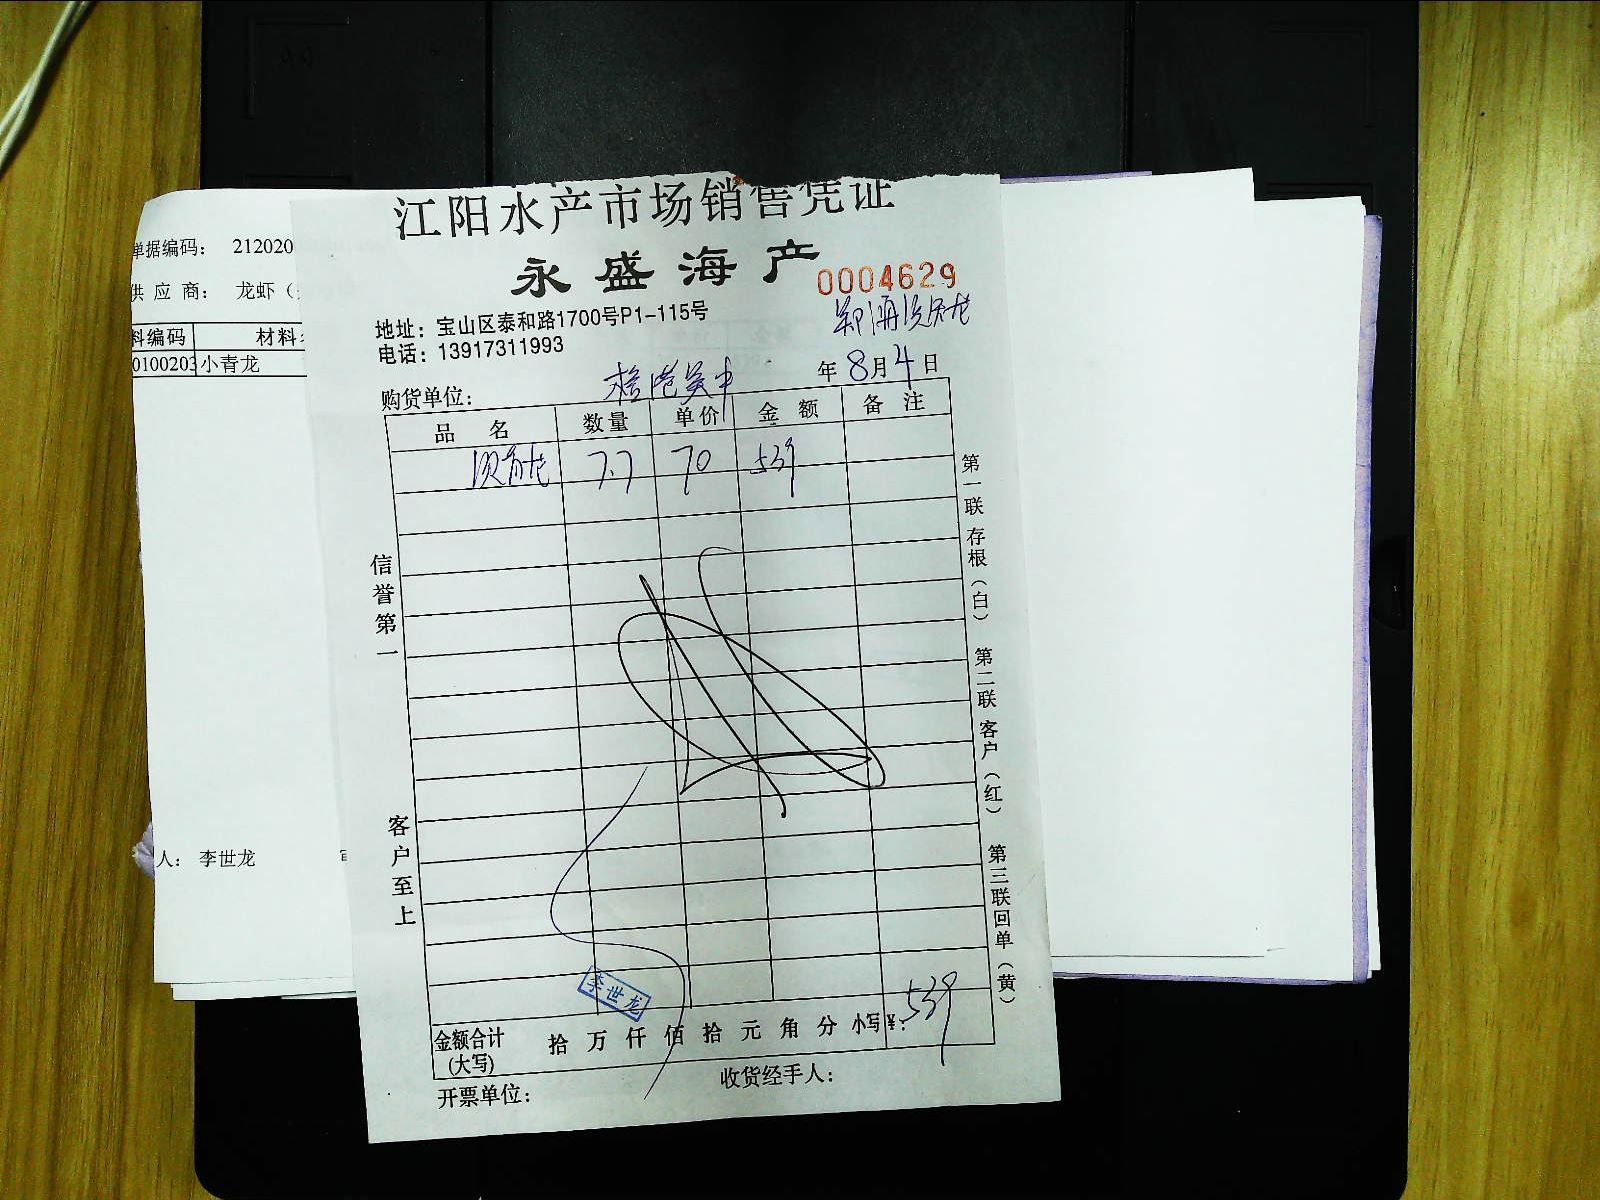 江阳水产市场销售凭证
永盛海产
0004629
地址：宝山区泰和路1700号P1-115号
电话：13917311993
年8月4日
购货单位：
品名 数量 单价 金额 备注
7.7 70 539
信誉第一
客户至上
第一联存根（白）
第二联客户（红）
第三联回单（黄）
李世龙
金额合计(大写) 拾 万 仟 佰 拾 元 角 分 小写¥：539
开票单位：
收货经手人：
单据编码： 212020
供应商： 龙虾（
料编码 材料
0100203 小青龙
人： 李世龙